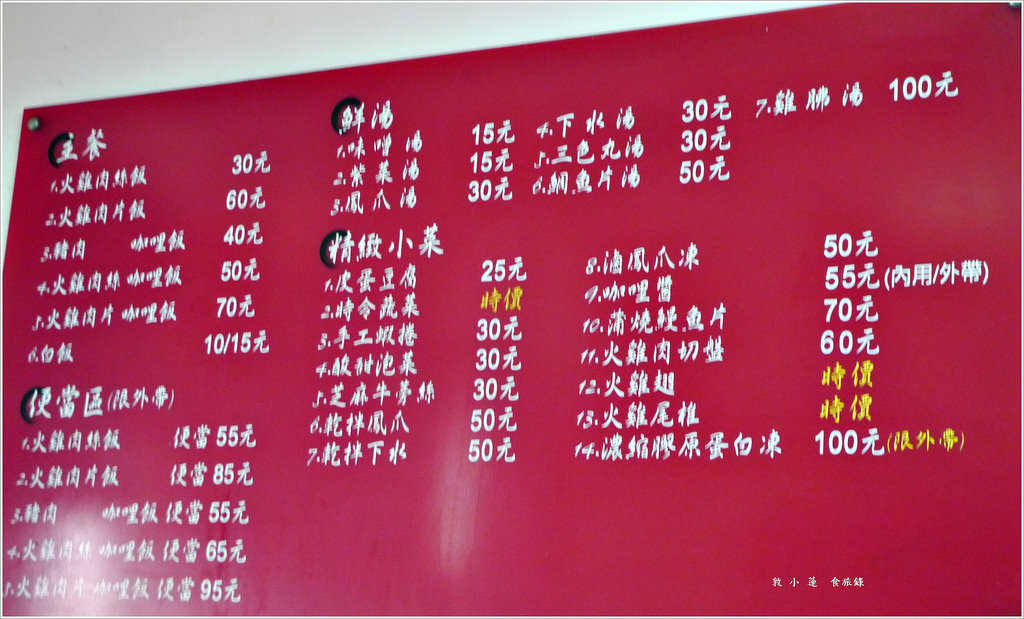 主餐
1.火雞肉絲飯 30元
2.火雞肉片飯 60元
3.豬肉 咖哩飯 40元
4.火雞肉絲 咖哩飯 50元
5.火雞肉片 咖哩飯 70元
6.白飯 10/15元
便當區(限外帶)
1.火雞肉絲飯 便當 55元
2.火雞肉片飯 便當 85元
3.豬肉 咖哩飯 便當 55元
4.火雞肉絲 咖哩飯 便當 65元
5.火雞肉片 咖哩飯 便當 95元
鮮湯
1.味噌湯 15元
2.紫菜湯 15元
3.鳳爪湯 30元
4.下水湯 30元
5.三色丸湯 30元
6.鯛魚片湯 50元
7.雞胇湯 100元
精緻小菜
1.皮蛋豆腐 25元
2.時令蔬菜 時價
3.手工蝦捲 30元
4.酸甜泡菜 30元
5.芝麻牛蒡絲 30元
6.乾拌鳳爪 50元
7.乾拌下水 50元
8.滷鳳爪凍 50元
9.咖哩醬 55元(內用/外帶)
10.蒲燒鰻魚片 70元
11.火雞肉切盤 60元
12.火雞翅 時價
13.火雞尾椎 時價
14.濃縮膠原蛋白凍 100元(限外帶)
敦小蓮 食旅錄